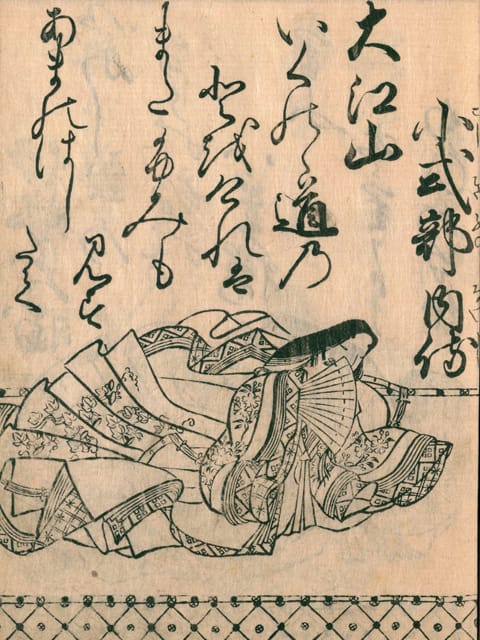 小式部内侍
大江山
いくのゝ道乃
とをけれは
またふみも
見す
あまのはし
たて